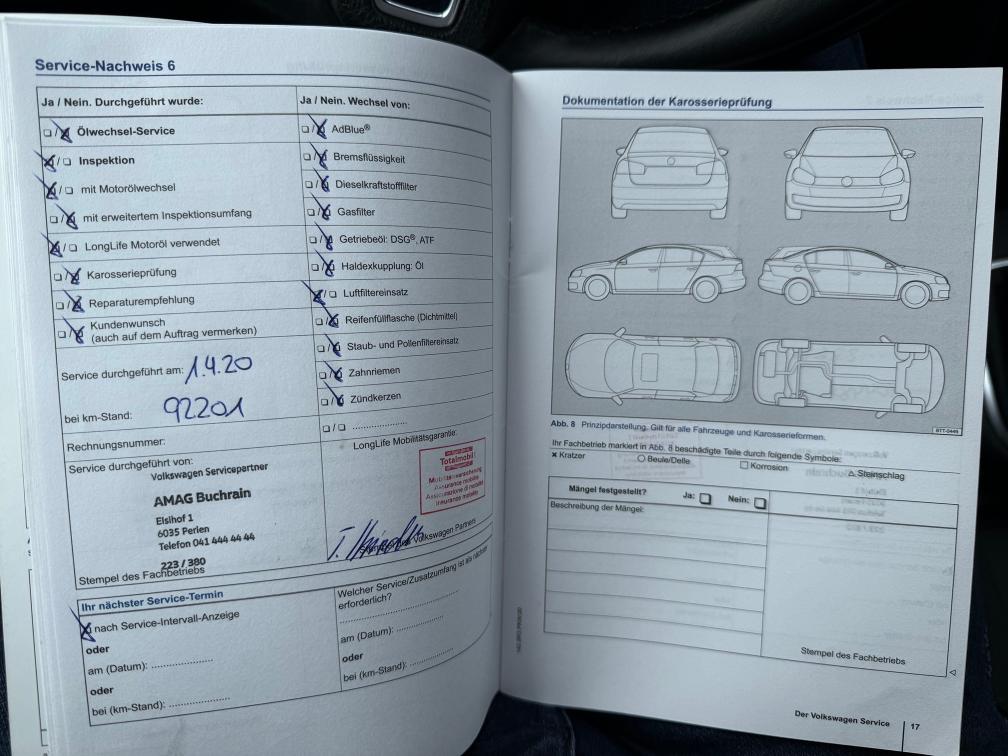 Service-Nachweis 6
Ja / Nein. Durchgeführt wurde:
Ölwechsel-Service
Inspektion
mit Motorölwechsel
mit erweitertem Inspektionsumfang
LongLife Motoröl verwendet
Karosserieprüfung
Reparaturempfehlung
Kundenwunsch
(auch auf dem Auftrag vermerken)
Service durchgeführt am: 1.4.20
bei km-Stand: 92201
Rechnungsnummer:
Service durchgeführt von:
Volkswagen Servicepartner
AMAG Buchrain
Elsihof 1
6035 Perlen
Telefon 041 444 44 44
223 / 380
Stempel des Fachbetriebs
Ja / Nein. Wechsel von:
AdBlue®
Bremsflüssigkeit
Dieselkraftstofffilter
Gasfilter
Getriebeöl: DSG®, ATF
Haldexkupplung: Öl
Luftfiltereinsatz
Reifenfüllflasche (Dichtmittel)
Staub- und Pollenfiltereinsatz
Zahnriemen
Zündkerzen
LongLife Mobilitätsgarantie:
Totalmobil!
Mobilitätsversicherung
Assurance mobilité
Assicurazione di mobilità
Insurance mobility
Volkswagen Partners
Ihr nächster Service-Termin
nach Service-Intervall-Anzeige
oder
am (Datum): ....................
oder
bei (km-Stand): ....................
Welcher Service/Zusatzumfang ist als nächster
erforderlich?
am (Datum): ...............
oder
bei (km-Stand): ...............
Dokumentation der Karosserieprüfung
Abb. 8 Prinzipdarstellung. Gilt für alle Fahrzeuge und Karosserieformen.
Ihr Fachbetrieb markiert in Abb. 8 beschädigte Teile durch folgende Symbole:
× Kratzer ○ Beule/Delle □ Korrosion △ Steinschlag
Mängel festgestellt? Ja: Nein:
Beschreibung der Mängel:
Stempel des Fachbetriebs
Der Volkswagen Service 17